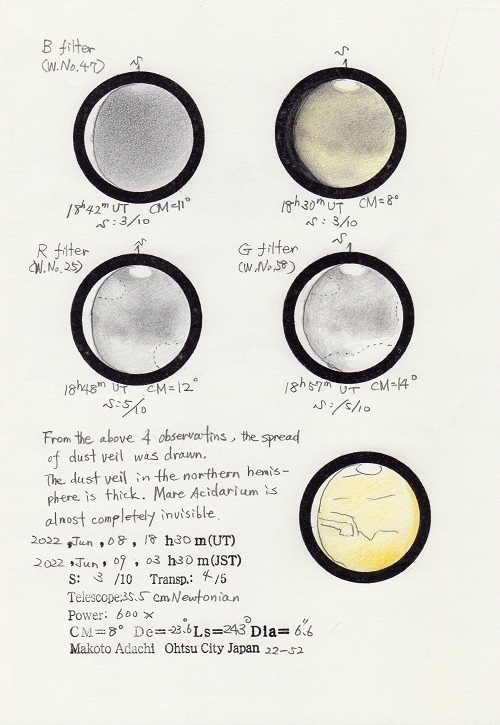 B filter
(W.No.47)
S
18h42m UT CM=11°
S: 3/10
S
18h30m UT CM=8°
S: 3/10
R filter
(W.No.25)
S
18h48m UT CM=12°
S: 5/10
G filter
(W.No.58)
S
18h57m UT CM=14°
S: /5/10
From the above 4 observatins, the spread
of dust veil was drawn.
The dust veil in the northern hemis-
phere is thick. Mare Acidarium is
almost completely invisible.
2022, Jun, 08, 18 h30 m(UT)
2022, Jun, 09, 03 h30 m(JST)
S: 3 /10 Transp.: 4/5
Telescope:35.5 cm Newtonian
Power: 600 x
CM=8° De=-23.6° Ls=243° Dia= 6".6
Makoto Adachi Ohtsu City Japan 22-52